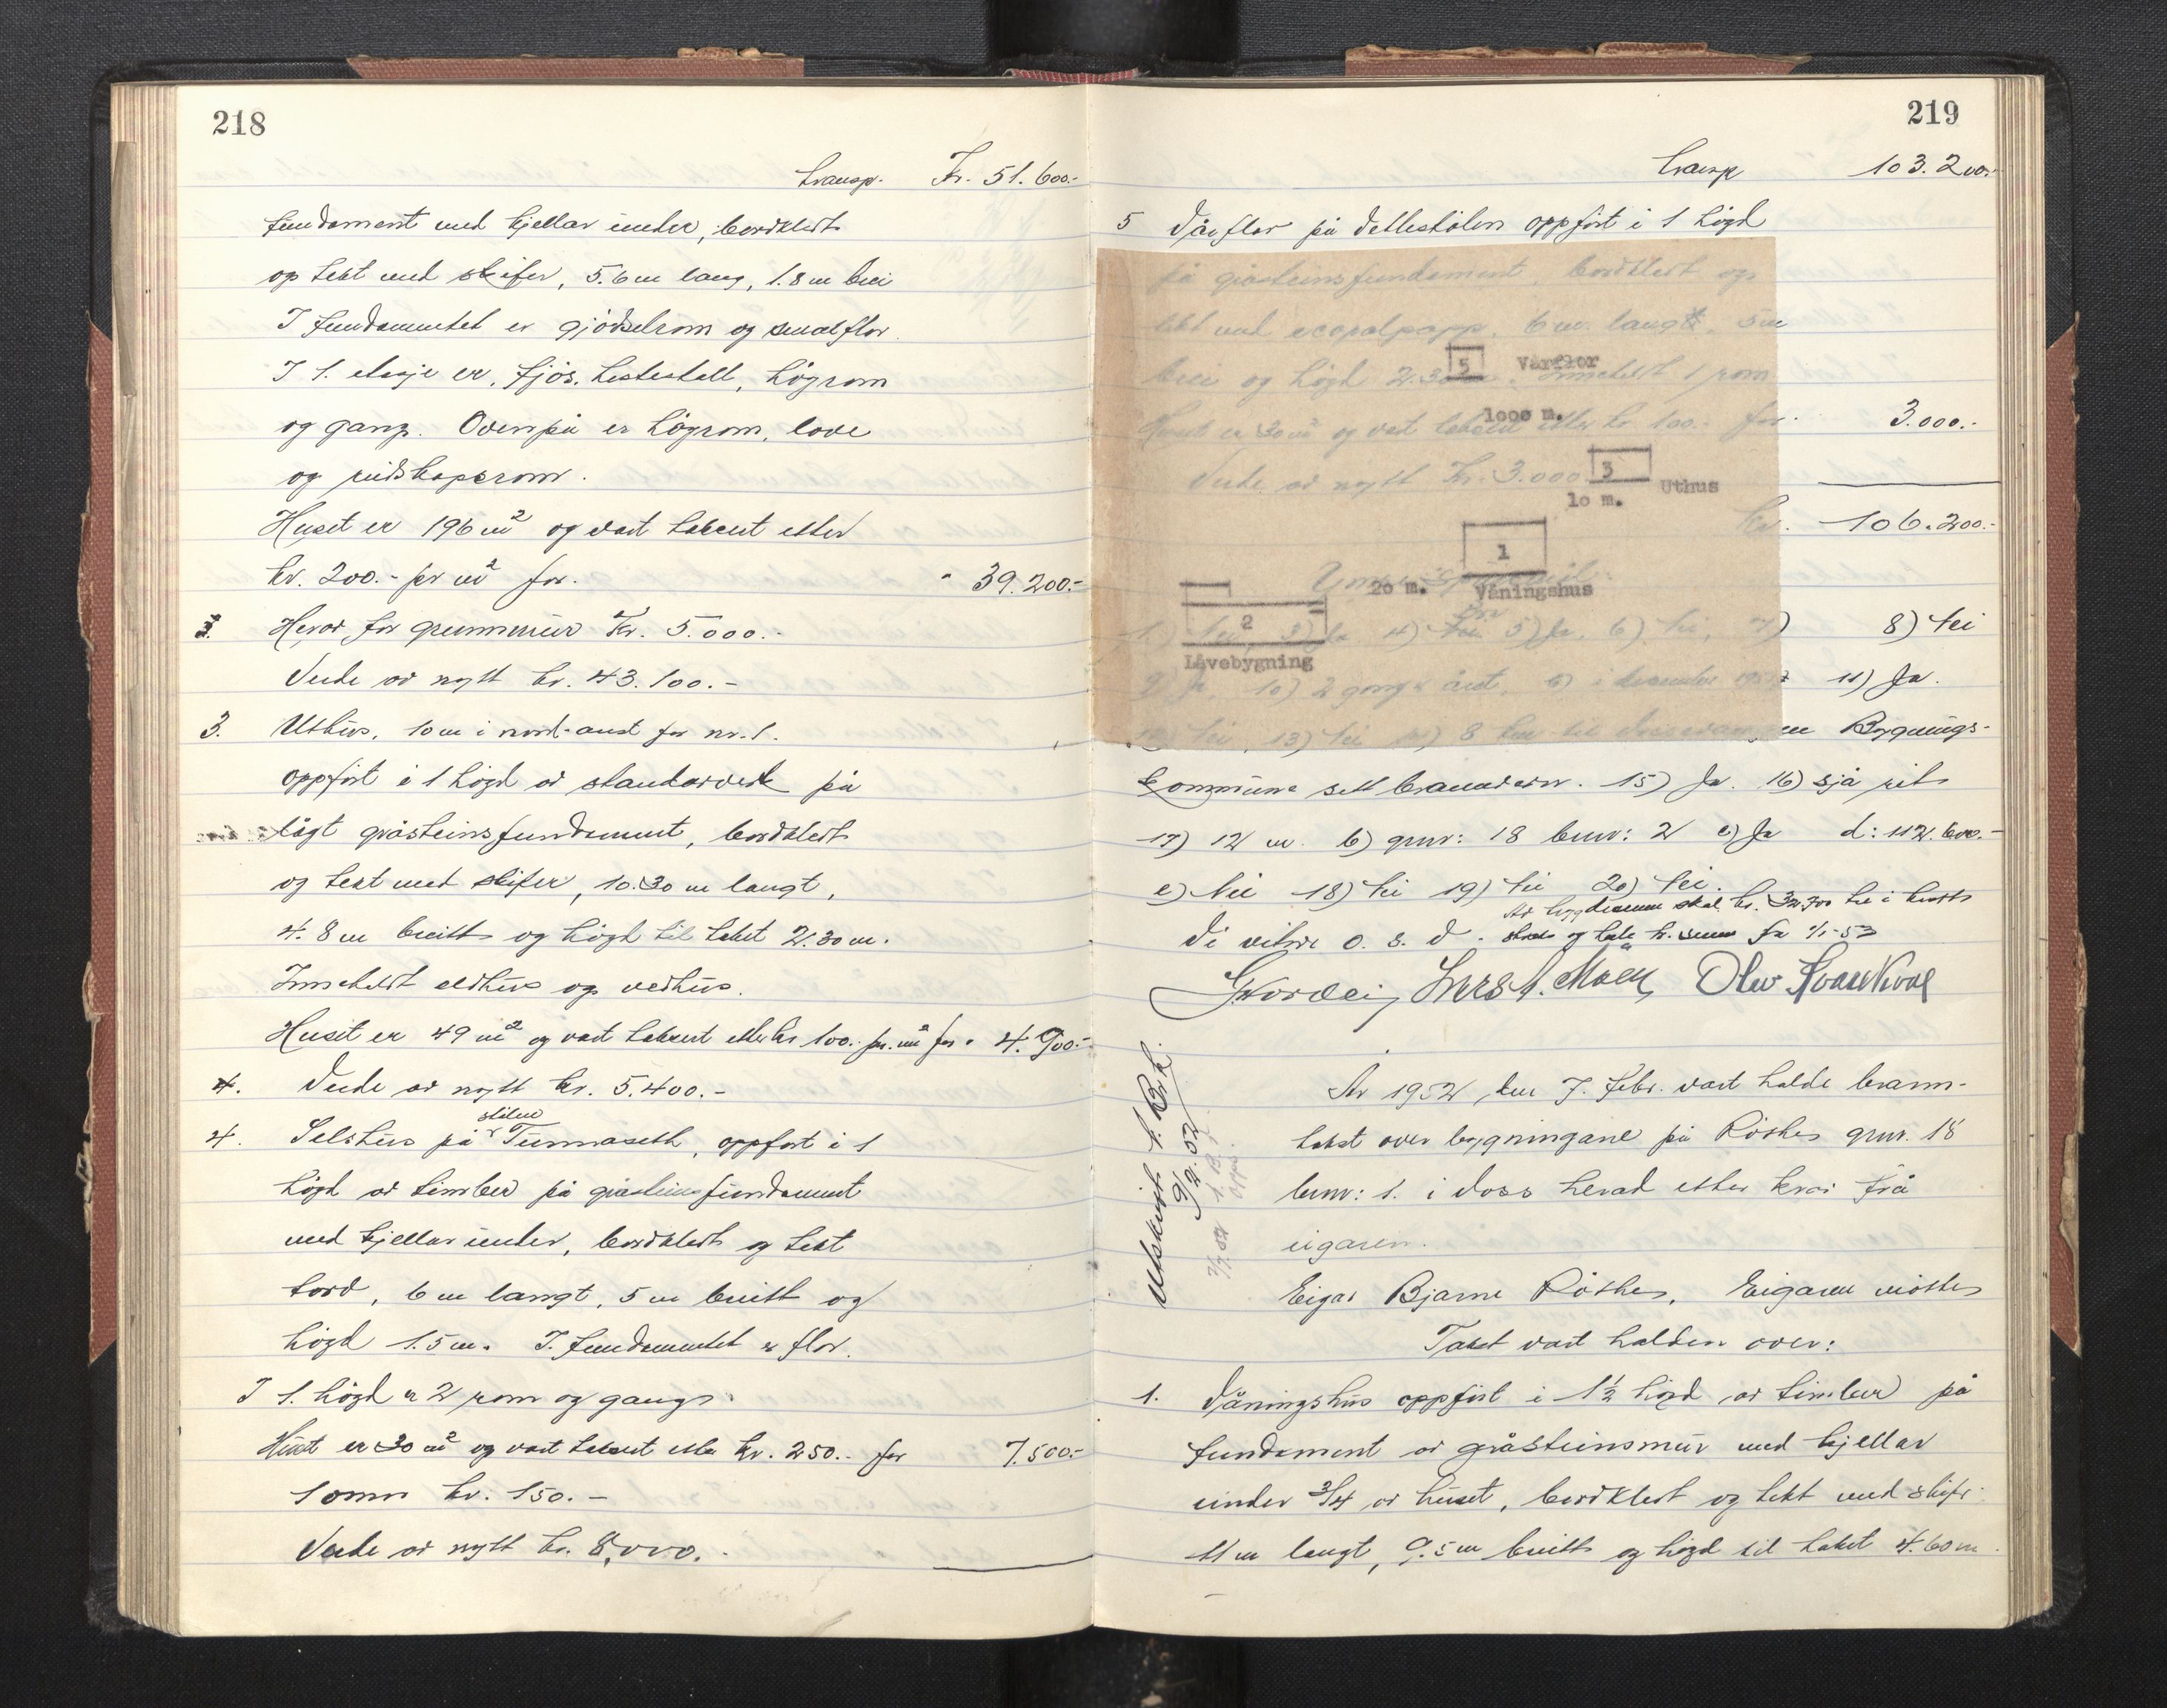 218
transp. Kr. 51.600.-
fundament med kjellar under, bordkledt
og tekt med skifer, 5.6 m lang, 1.8 m brei
I fundamentet er gjødselrom og smalflor.
I 1. etasje er, fjøs, hestestall, høgrom
og gang. Ovenpå er høgrom, løve
og reidskapsrom.
Huset er 196 m² og vart taksert etter
kr. 200.- pr m² for. " 39.200.-
Herav for grunnmur Kr. 5.000.-
Verde av nytt kr. 43.100.-
3. Uthus, 10 m i nord-aust for nr. 1.
oppført i 1 høgd av standarverk på
lågt gråsteinsfundament, bordkledt
og tekt med skifer, 10.30 m langt,
4.8 m breitt og høgd til taket 2.30 m.
Inneheldt eldhus og vedhus.
Huset er 49 m² og vart taksert etter kr 100.- pr. m² for " 4.900.-
4. Verde av nytt kr. 5.400.-
stølen
4. Selshus på Tunnaseth, oppført i 1
høgd av timber på gråsteinsfundament
med kjellar under, bordkledt og tekt
tord, 6 m langt, 5 m breitt og
høgd 1.5 m. I fundamentet er flor.
I 1. høgd er 2 rom og gang.
Huset er 30 m² og vart taksert etter kr. 250.- for 7.500.-
1 omn kr. 150.-
Verde av nytt kr. 8.000.-
219
transp 103.200.-
5 Vårflor på Vetlestølen oppført i 1 høgd
på gråsteinsfundament, bordkledt og
tekt med ecopalpapp, 6 m. langt, 5 m
brei og høgd 2.30 m. Inneheldt 1 rom
5 Vårflor
1000 m.
Huset er 30 m² og vart taksert etter kr 100.- for. 3.000.-
Verde av nytt Kr. 3.000
3 Uthus
10 m.
kr. 106.200.-
1
20 m. Våningshus
2
Løvebygning
4) 5) Ja. 6) Nei, 7) 8) Nei
9) Ja 10) 2 gonger året, b) i desember 11) Ja.
12) Nei, 13) Nei 14) 8 km til Bygnings-
kommune sett brannvern. 15) Ja. 16) sjå rits
17) 12 m. b) gnr: 18 bnr: 2 c) Ja d: 112.600.-
e) Nei 18) Nei 19) Nei 20) Nei.
Av byggdesumm skal kr. 32.700
Vi vitnar o. s. v. 1/1-53
Lars A. Møen
År 1952, den 7. febr. vart halde brann-
takst over bygningane på Røthe gnr. 18
bnr: 1. i Voss herad etter krav frå
eigaren.
Utskrift t. Brk.
9/2. 52
Eigar Bjarne Røthe, Eigaren møtte
Takst vart halden over:
1. Våningshus oppført i 1½ høgd av timber på
fundament av gråsteinsmur med kjellar
under 3/4 av huset, bordkledt og tekt med skifer.
11 m langt, 9.5 m breitt og høgd til taket 4.60 m.